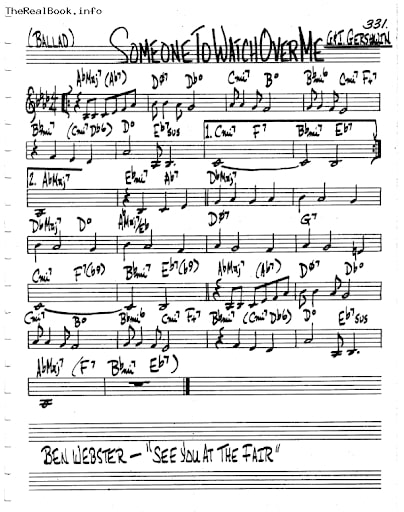 TheRealBook.info
331.
(BALLAD) SOMEONE TO WATCH OVER ME G&I. GERSHWIN
AbMaj7 (Ab7) Dø7 Dbo Cmi7 Bo Bbmi6 Cmi7 F+7
Bbmi7 (Cmi7 Db6) Do Eb7sus 1. Cmi7 F7 Bbmi7 Eb7
2. AbMaj7 Ebmi7 Ab7 DbMaj7
DbMaj7 Do AbMaj7/Eb Dø7 G7
Cmi7 F7(b9) Bbmi7 Eb7(b9) AbMaj7 (Ab7) Dø7 Dbo
Cmi7 Bo Bbmi6 Cmi7 F+7 Bbmi7 (Cmi7 Db6) Do Eb7sus
AbMaj7 (F7 Bbmi7 Eb7)
BEN WEBSTER – "SEE YOU AT THE FAIR"